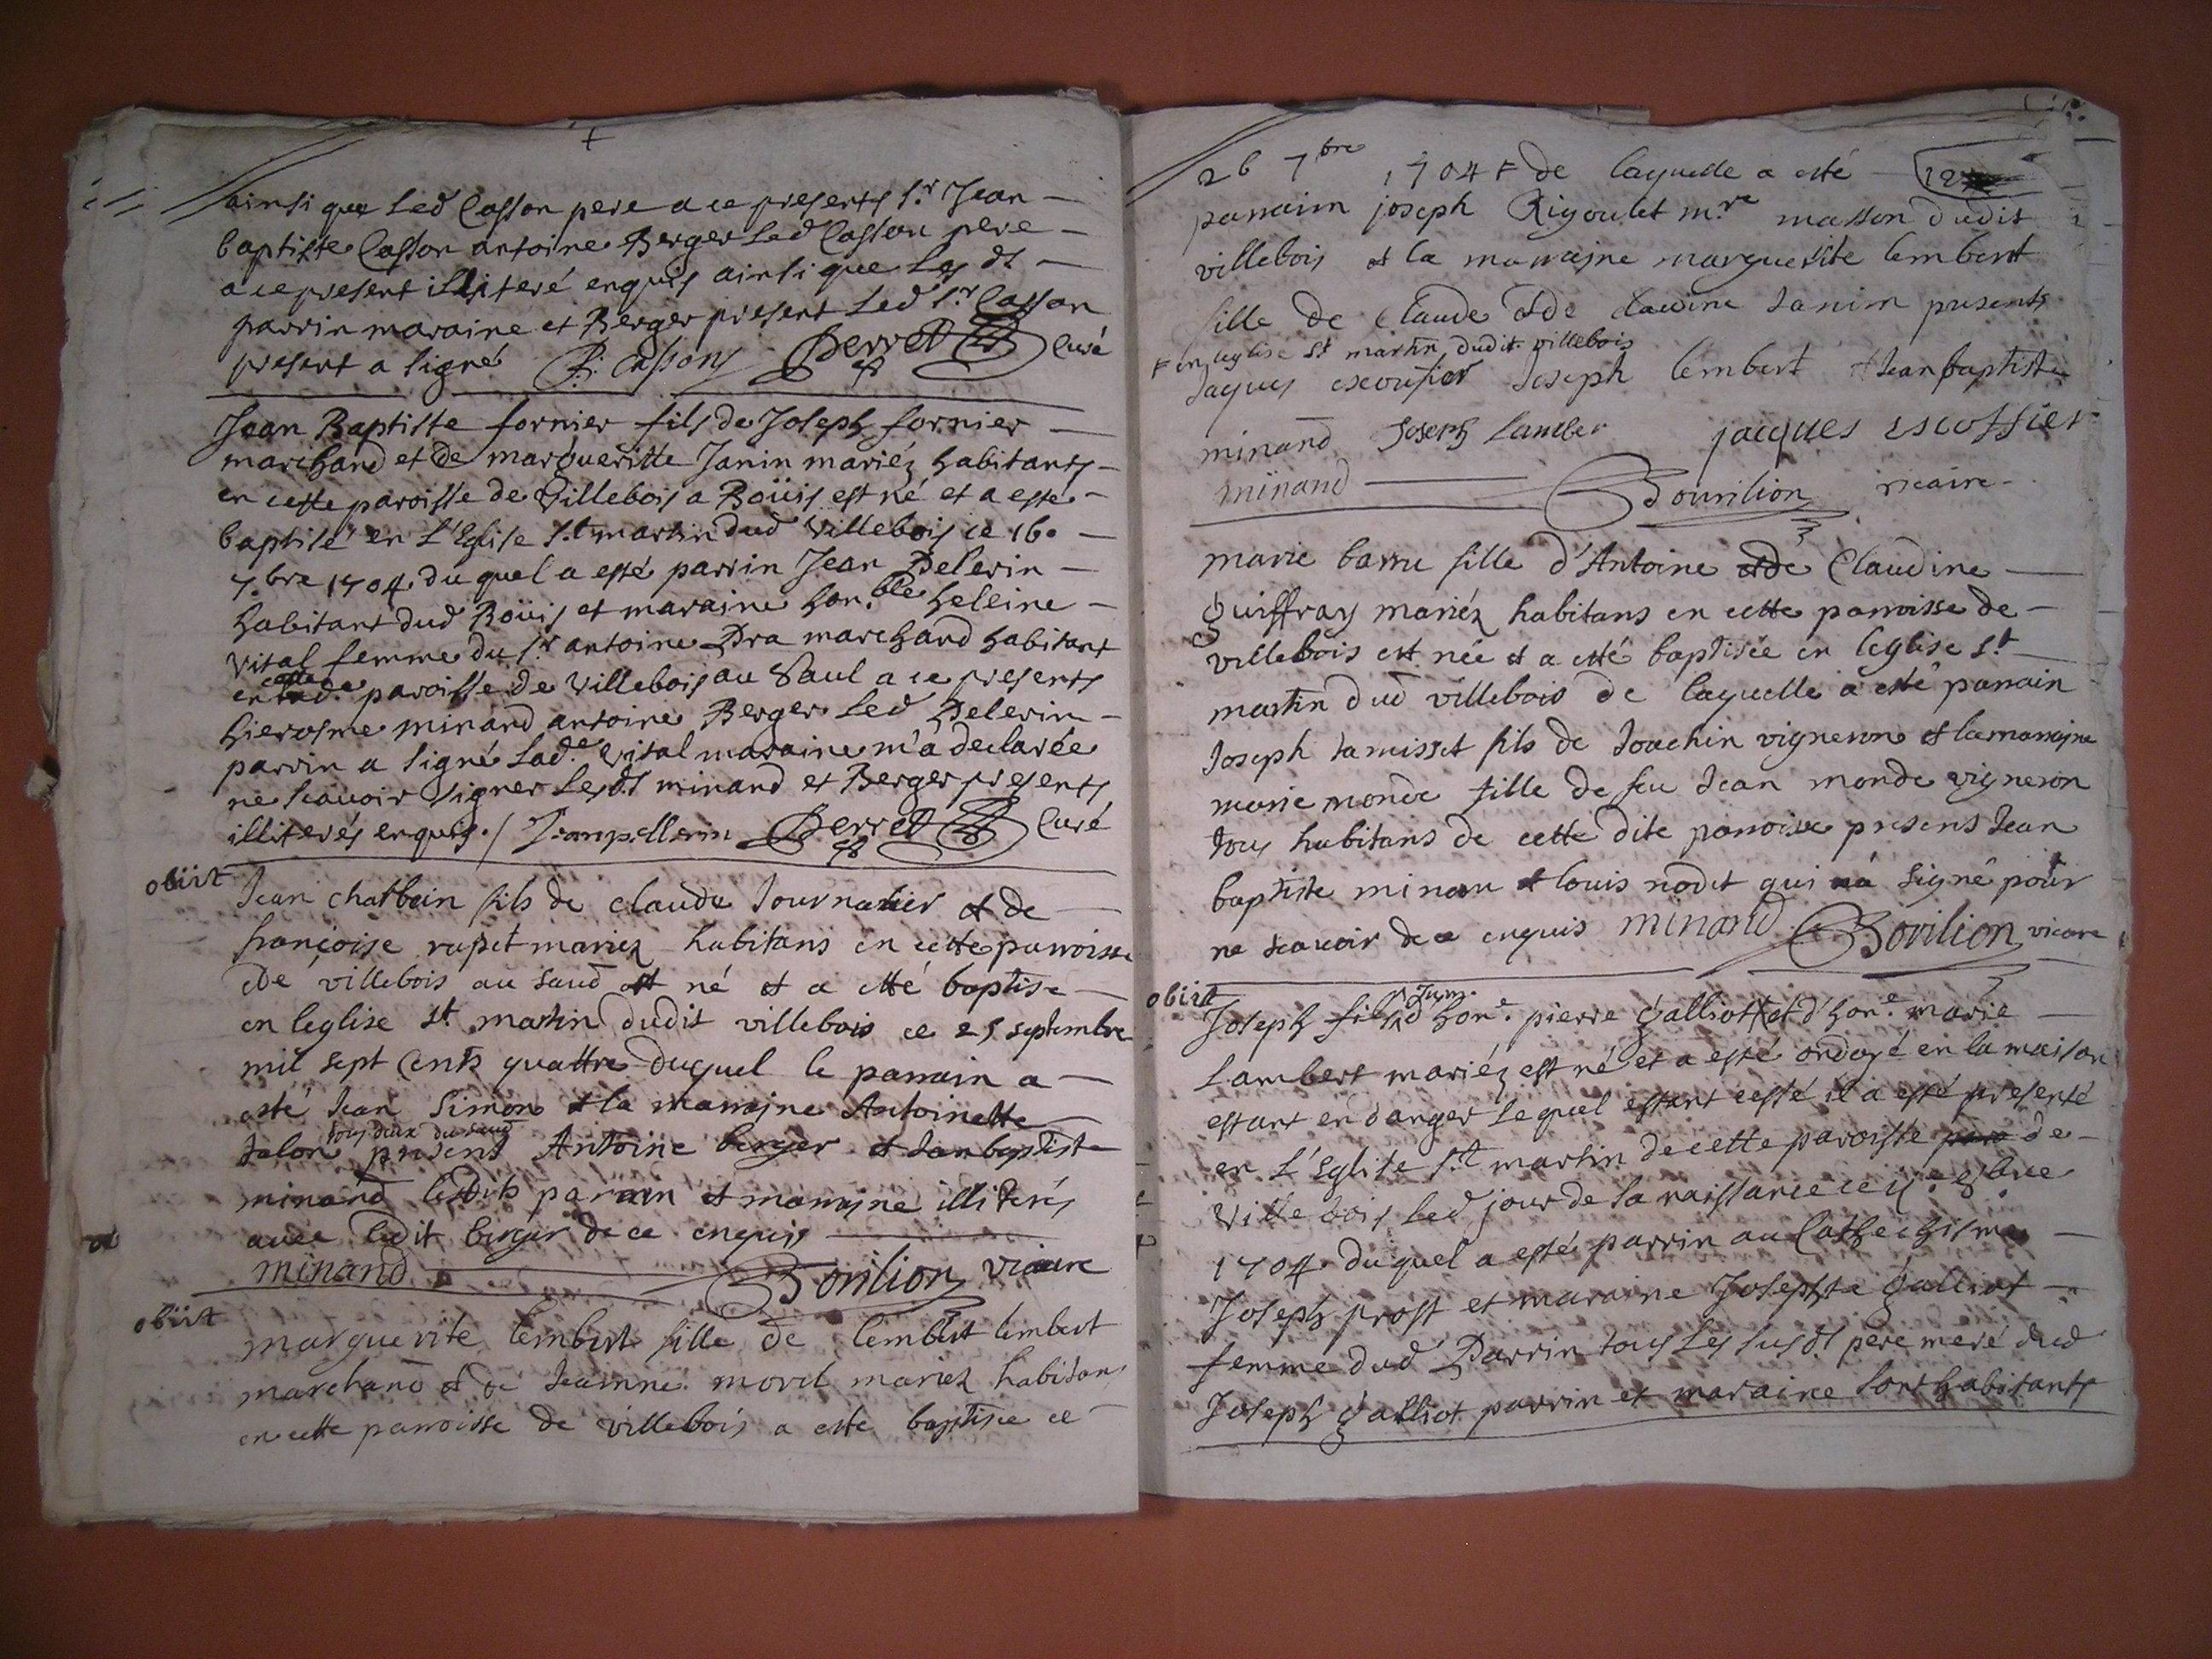 ainsi que led Casson pere a ce presents Sr Jean
baptiste Casson antoine Berger led Casson pere
a ce present illiteré enquis ainsi que les dt
parrin maraine et Berger present led Sr Casson
present a signé P. Cassons Perret Curé
Jean Baptiste fornier fils de Joseph fornier
marchand et de margueritte Janin mariéz habitants
en cette paroisse de Villebois a Boüis est né et a esté
baptisé en L'Eglise St martin dud Villebois ce 16.
7.bre 1704 du quel a esté parrin Jean Pelerin
habitant dud Boüis et maraine hon.ble helleine
Vital femme du Sr antoine Dra marchand habitant
en cette paroisse de Villebois au Saul a ce presents
hierosme minand antoine Berger led Pelerin
parrin a signé Lad.e Vital maraine m'a declarée
ne scavoir signer lesdt minand et Berger presents
illiterés enquis ./ Jean pellerin Perret Curé
obiit
Jean charbein fils de claude Journalier et de
françoise rapet mariez habitans en cette parroisse
de villebois au saud est né et a etté baptise
en leglise st martin dudit villebois ce 25 septembre
mil sept Cents quattre duquel le parrain a
esté Jean Simon et la marrajne Antoinette
tous deux du saud
Jalon presens Antoine berger et Jan baptiste
minand lesdits parrain et marrajne illiterés
avec ledit berger de ce enquis
minand Bovilion vicaire
obiit
marguerite lembert fille de lembert lembert
marchand et de Jeanne morel mariez habitans
en cette parroisse de villebois a esté baptisée ce
26 7bre 1704 + de laquelle a esté
parrain joseph Rigoulet mre masson dudit
villebois et la marrajne marguerite lembert
fille de Claude et de claudine Janin presents
+ en leglise st martin dudit villebois
Jaques escoufier Joseph lembert et Jean baptiste
minand Joseph Lamber jacques escoffier
minand Bourilion vicaire
marie barru fille d'Antoine et de Claudine
guiffray mariéz habitans en cette parroisse de
villebois est née et a esté baptisée en leglise st
martin dud villebois de laquelle a esté parrain
Joseph tamisset fils de Joachin vigneron et la marrajne
marie monde fille de feu Jean monde vigneron
tous habitans de cette dite parroisse presens Jean
baptiste minan et louis nodet qui na signé pour
ne scavoir de ce enquis minand Bovilion vicaire
obiit
Joseph fils d'hon.e pierre galliot et d'hon.e marie
Lambert mariéz est né et a esté ondoyé en la maison
estant en danger lequel estant cessé il a esté presenté
en L'Eglise St martin de cette paroisse de
Ville bois led jour de sa naissance
1704 duquel a esté parrin au Cathechisme
Joseph prost et maraine Josephte galliot
femme dud Parrin tous les susdt pere mere dud
Joseph galliot parrin et maraine sont habitants